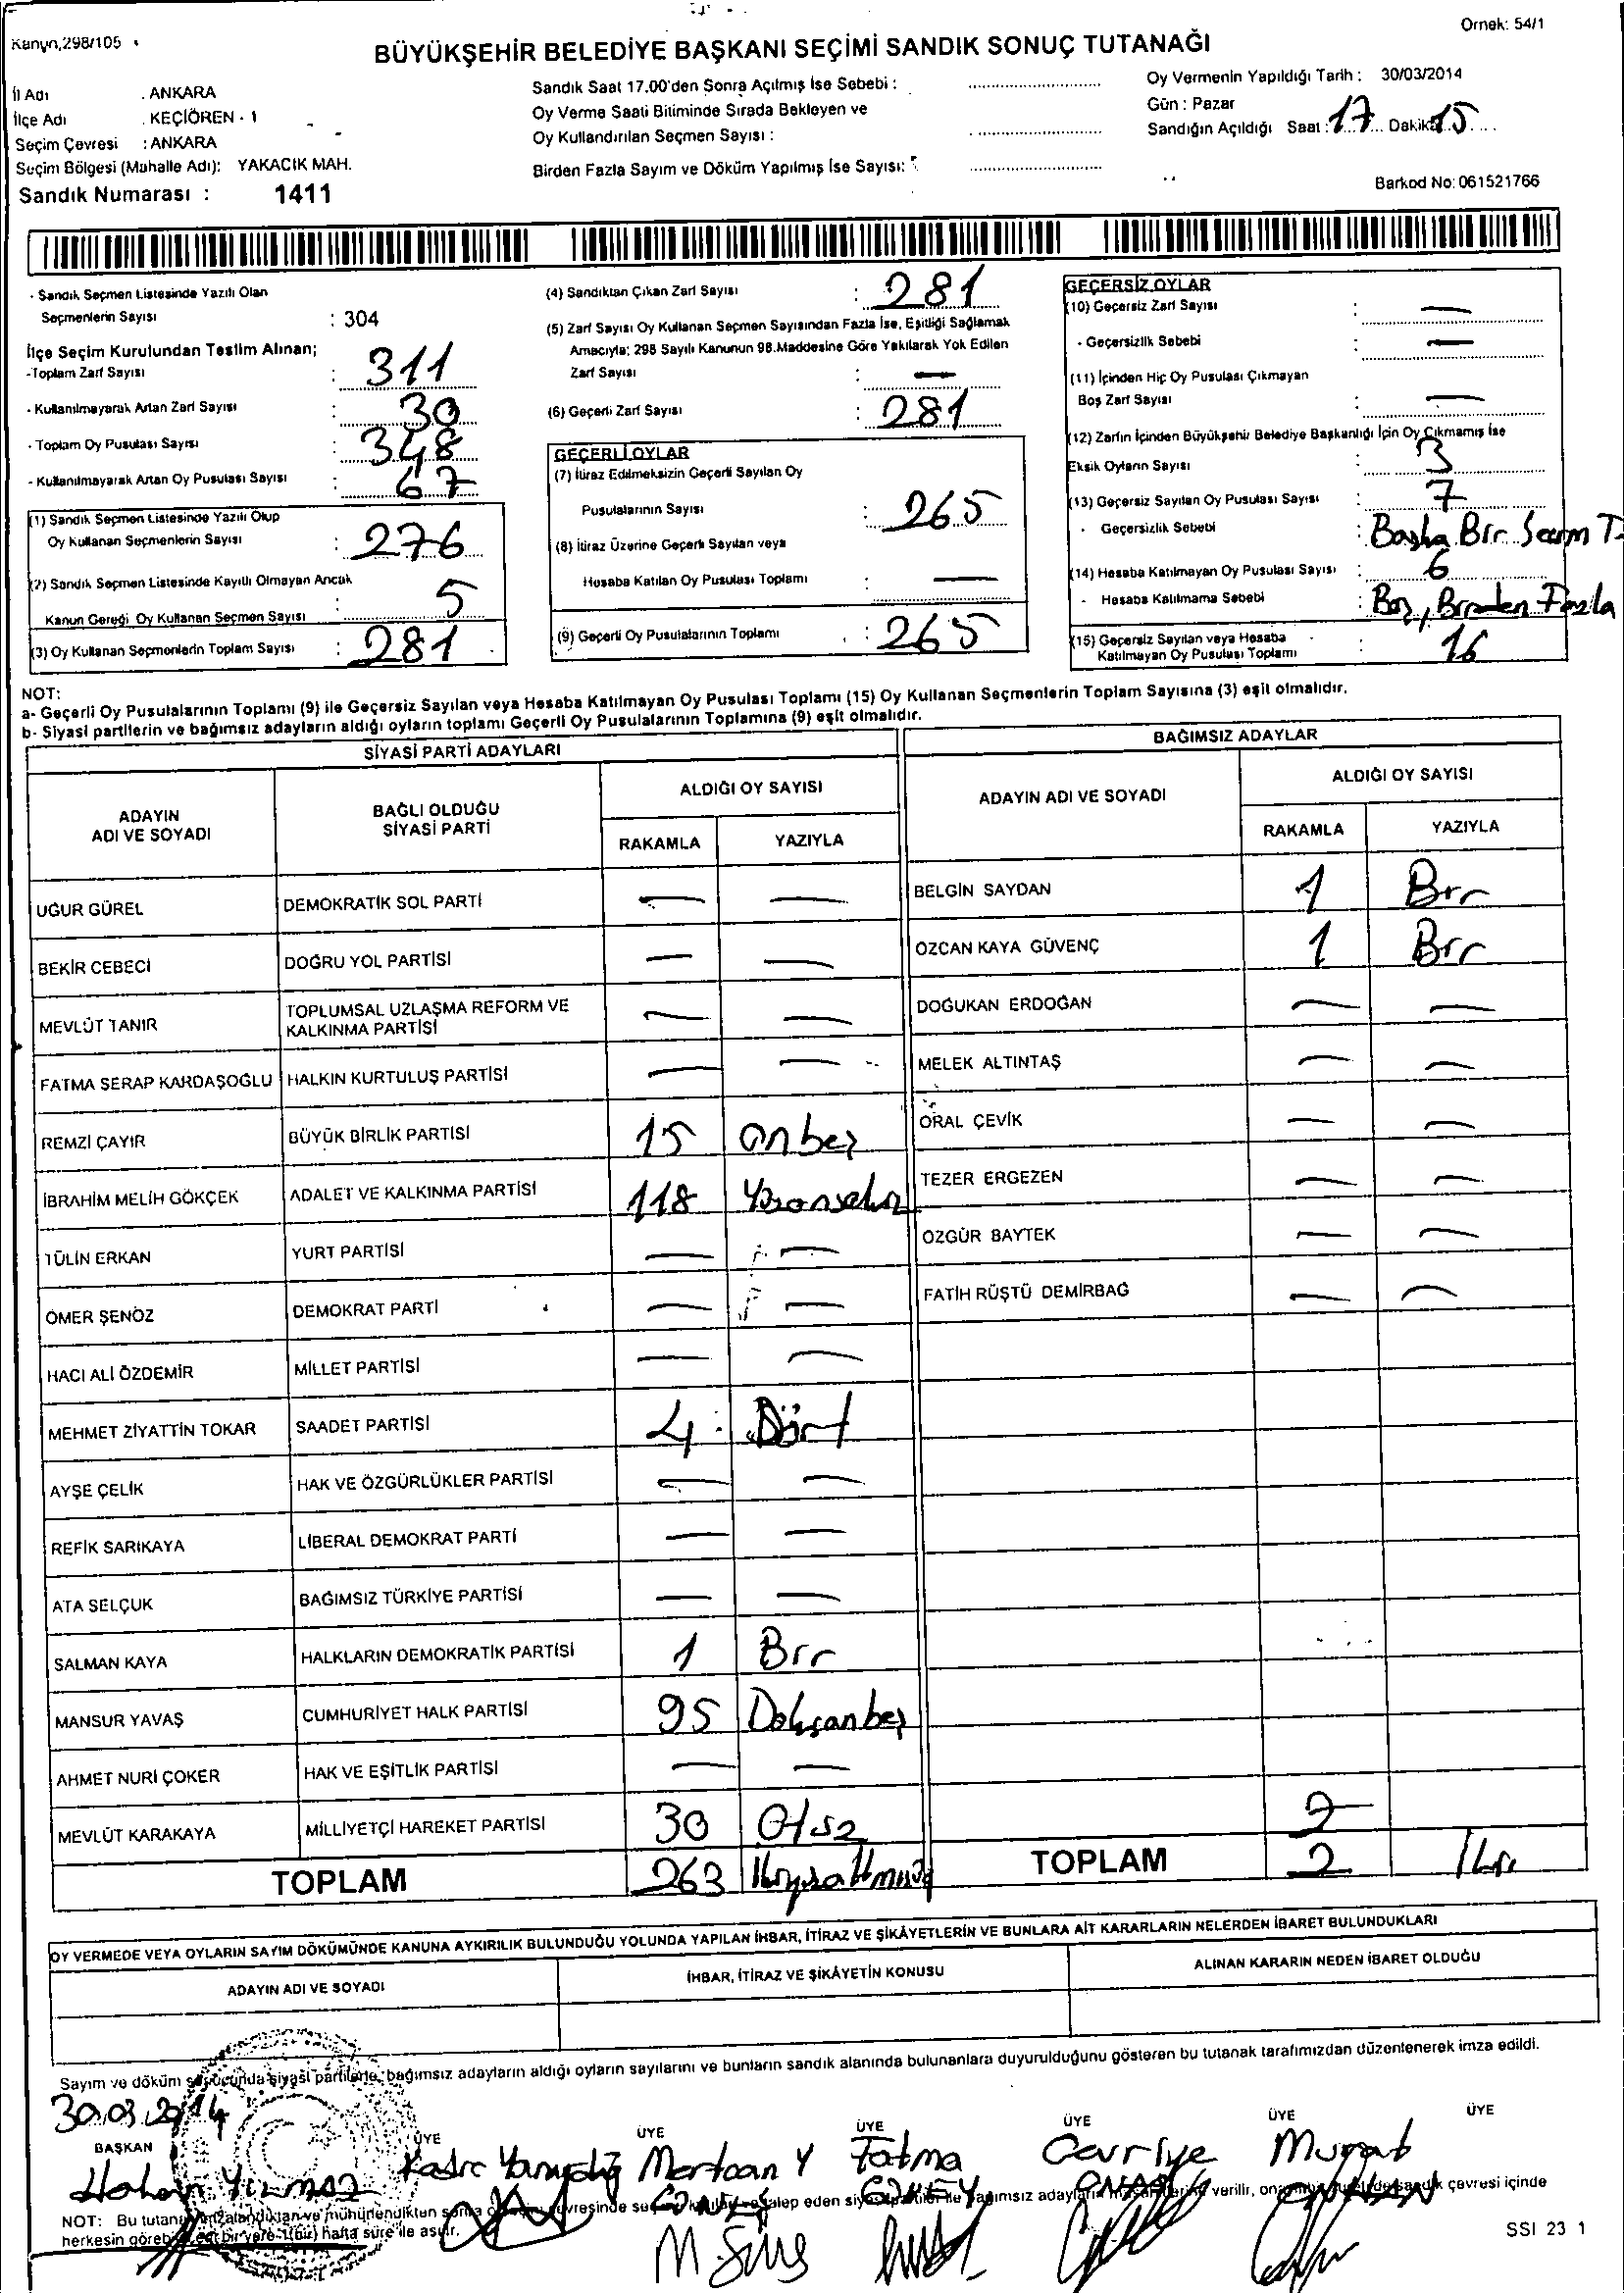 Kanun,298/105
Örnek: 54/1
BÜYÜKŞEHİR BELEDİYE BAŞKANI SEÇİMİ SANDIK SONUÇ TUTANAĞI
İl Adı : ANKARA
İlçe Adı : KEÇİÖREN - 1
Seçim Çevresi : ANKARA
Seçim Bölgesi (Mahalle Adı): YAKACIK MAH.
Sandık Numarası : 1411
Sandık Saat 17.00'den Sonra Açılmış İse Sebebi :
Oy Verme Saati Bitiminde Sırada Bekleyen ve
Oy Kullandırılan Seçmen Sayısı :
Birden Fazla Sayım ve Döküm Yapılmış İse Sayısı:
Oy Vermenin Yapıldığı Tarih : 30/03/2014
Gün : Pazar
Sandığın Açıldığı Saat : 17 Dakika 15
Barkod No: 061521766
- Sandık Seçmen Listesinde Yazılı Olan
Seçmenlerin Sayısı : 304
İlçe Seçim Kurulundan Teslim Alınan;
-Toplam Zarf Sayısı : 311
- Kullanılmayarak Artan Zarf Sayısı : 30
- Toplam Oy Pusulası Sayısı : 348
- Kullanılmayarak Artan Oy Pusulası Sayısı : 67
(1) Sandık Seçmen Listesinde Yazılı Olup
Oy Kullanan Seçmenlerin Sayısı : 276
(2) Sandık Seçmen Listesinde Kayıtlı Olmayan Ancak
Kanun Gereği Oy Kullanan Seçmen Sayısı : 5
(3) Oy Kullanan Seçmenlerin Toplam Sayısı : 281
(4) Sandıktan Çıkan Zarf Sayısı : 281
(5) Zarf Sayısı Oy Kullanan Seçmen Sayısından Fazla İse, Eşitliği Sağlamak
Amacıyla; 298 Sayılı Kanunun 98.Maddesine Göre Yakılarak Yok Edilen
Zarf Sayısı : —
(6) Geçerli Zarf Sayısı : 281
GEÇERLİ OYLAR
(7) İtiraz Edilmeksizin Geçerli Sayılan Oy
Pusulalarının Sayısı : 265
(8) İtiraz Üzerine Geçerli Sayılan veya
Hesaba Katılan Oy Pusulası Toplamı : —
(9) Geçerli Oy Pusulalarının Toplamı : 265
GEÇERSİZ OYLAR
(10) Geçersiz Zarf Sayısı : —
- Geçersizlik Sebebi : —
(11) İçinden Hiç Oy Pusulası Çıkmayan
Boş Zarf Sayısı : —
(12) Zarfın İçinden Büyükşehir Belediye Başkanlığı İçin Oy Çıkmamış İse
Eksik Oyların Sayısı : 3
(13) Geçersiz Sayılan Oy Pusulası Sayısı : 7
- Geçersizlik Sebebi : Başka Bir Seçim T.
(14) Hesaba Katılmayan Oy Pusulası Sayısı : 6
- Hesaba Katılmama Sebebi : Boş, Birden Fazla
(15) Geçersiz Sayılan veya Hesaba
Katılmayan Oy Pusulası Toplamı : 16
NOT:
a- Geçerli Oy Pusulalarının Toplamı (9) ile Geçersiz Sayılan veya Hesaba Katılmayan Oy Pusulası Toplamı (15) Oy Kullanan Seçmenlerin Toplam Sayısına (3) eşit olmalıdır.
b- Siyasi partilerin ve bağımsız adayların aldığı oyların toplamı Geçerli Oy Pusulalarının Toplamına (9) eşit olmalıdır.
SİYASİ PARTİ ADAYLARI
ADAYIN ADI VE SOYADI
BAĞLI OLDUĞU SİYASİ PARTİ
ALDIĞI OY SAYISI
RAKAMLA YAZIYLA
UĞUR GÜREL DEMOKRATİK SOL PARTİ — —
BEKİR CEBECİ DOĞRU YOL PARTİSİ — —
MEVLÜT TANIR TOPLUMSAL UZLAŞMA REFORM VE KALKINMA PARTİSİ — —
FATMA SERAP KARDAŞOĞLU HALKIN KURTULUŞ PARTİSİ — —
REMZİ ÇAYIR BÜYÜK BİRLİK PARTİSİ 15 Onbeş
İBRAHİM MELİH GÖKÇEK ADALET VE KALKINMA PARTİSİ 118 Yüzonsekiz
TÜLİN ERKAN YURT PARTİSİ — —
ÖMER ŞENÖZ DEMOKRAT PARTİ — —
HACI ALİ ÖZDEMİR MİLLET PARTİSİ — —
MEHMET ZİYATTİN TOKAR SAADET PARTİSİ 4 Dört
AYŞE ÇELİK HAK VE ÖZGÜRLÜKLER PARTİSİ — —
REFİK SARIKAYA LİBERAL DEMOKRAT PARTİ — —
ATA SELÇUK BAĞIMSIZ TÜRKİYE PARTİSİ — —
SALMAN KAYA HALKLARIN DEMOKRATİK PARTİSİ 1 Bir
MANSUR YAVAŞ CUMHURİYET HALK PARTİSİ 95 Doksanbeş
AHMET NURİ ÇOKER HAK VE EŞİTLİK PARTİSİ — —
MEVLÜT KARAKAYA MİLLİYETÇİ HAREKET PARTİSİ 30 Otuz
TOPLAM 263 İkiyüzaltmışüç
BAĞIMSIZ ADAYLAR
ADAYIN ADI VE SOYADI
ALDIĞI OY SAYISI
RAKAMLA YAZIYLA
BELGİN SAYDAN 1 Bir
ÖZCAN KAYA GÜVENÇ 1 Bir
DOĞUKAN ERDOĞAN — —
MELEK ALTINTAŞ — —
ORAL ÇEVİK — —
TEZER ERGEZEN — —
ÖZGÜR BAYTEK — —
FATİH RÜŞTÜ DEMİRBAĞ — —
2
TOPLAM 2 İki
OY VERMEDE VEYA OYLARIN SAYIM DÖKÜMÜNDE KANUNA AYKIRILIK BULUNDUĞU YOLUNDA YAPILAN İHBAR, İTİRAZ VE ŞİKÂYETLERİN VE BUNLARA AİT KARARLARIN NELERDEN İBARET BULUNDUKLARI
ADAYIN ADI VE SOYADI
İHBAR, İTİRAZ VE ŞİKÂYETİN KONUSU
ALINAN KARARIN NEDEN İBARET OLDUĞU
Sayım ve döküm sonucunda siyasi partilerle, bağımsız adayların aldığı oyların sayılarını ve bunların sandık alanında bulunanlara duyurulduğunu gösteren bu tutanak tarafımızdan düzenlenerek imza edildi.
30.03.2014
BAŞKAN ÜYE ÜYE ÜYE ÜYE ÜYE ÜYE
Hakan Yılmaz Kadir Mertcan Y Fatma Cevriye Murat
GÜNEŞ GÖKEY
NOT: Bu tutanak imzalandıktan ve mühürlendikten sonra çevresinde talep eden siyasi partiler ile bağımsız adayların verilir, sandık çevresi içinde
herkesin görebileceği bir yere 1(bir) hafta süre ile asılır.
SSI 23 1